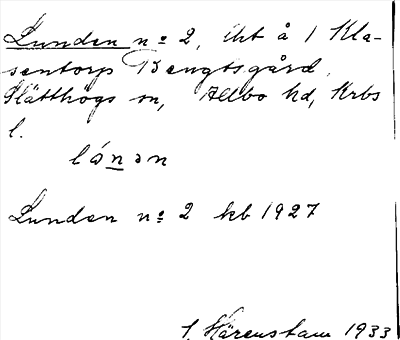 Lunden nº 2, iht å 1 Kla-
sentorp Bengtsgård,
Slätthögs sn, Allbo hd, Krbs
l.
lónən
Lunden nº 2 kb 1927
S. Härenstam 1933